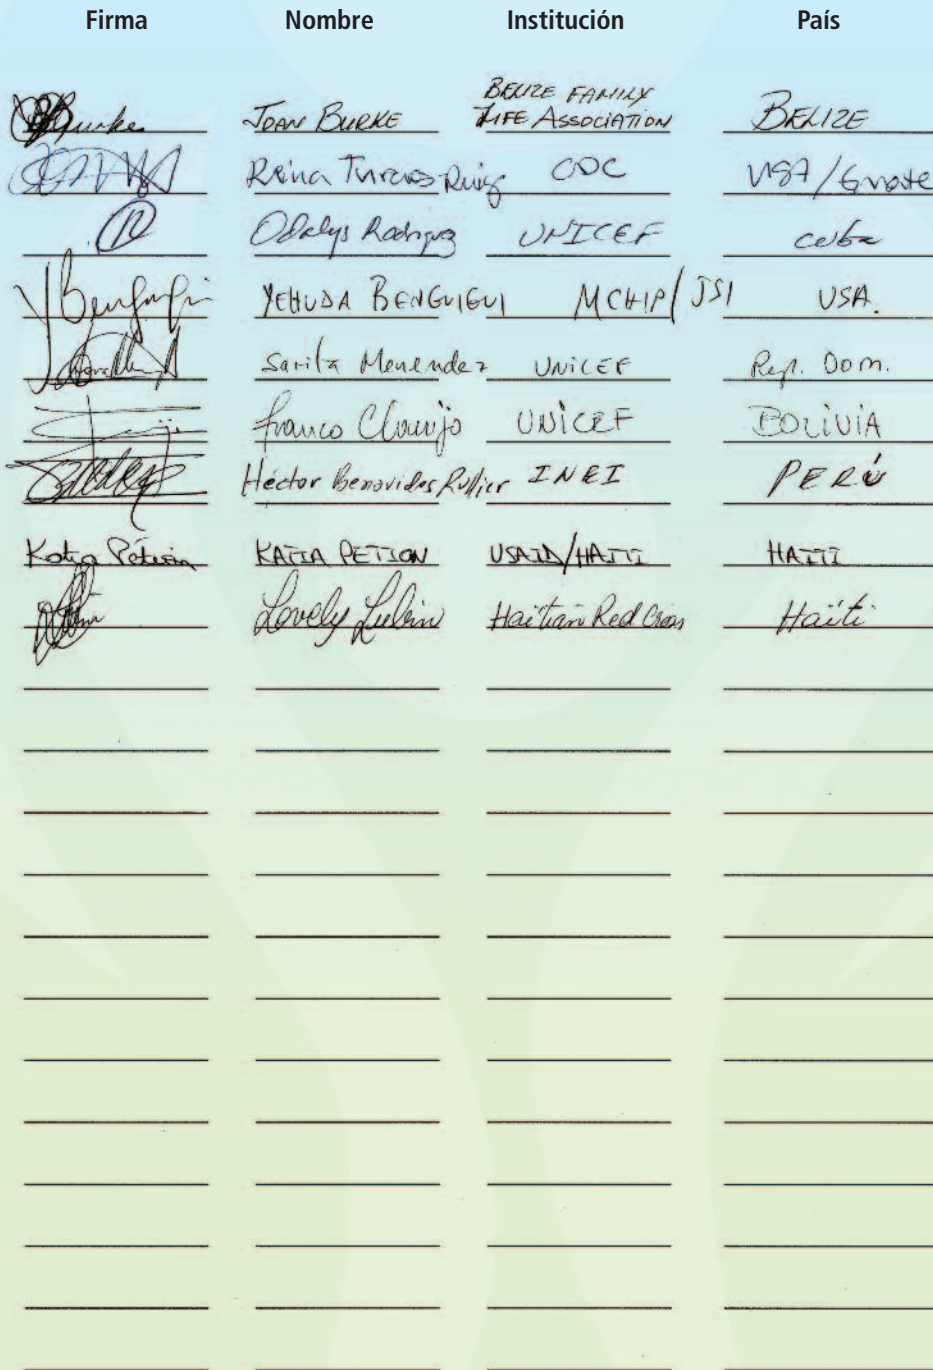 Firma Nombre Institución País
Burke JOAN BURKE BELIZE FAMILY LIFE ASSOCIATION BELIZE
Reina Turcios-Ruiz CDC USA/Guate
Odalys Rodriguez UNICEF Cuba
YBenguigui YEHUDA BENGUIGUI MCHIP/JSI USA.
Sarita Menendez UNICEF Rep. Dom.
Franco Clavijo UNICEF BOLIVIA
Héctor Benavides Rullier INEI PERÚ
Katia Pétion KATIA PETION USAID/HAITI HAITI
Lovely Lubin Haïtian Red Cross Haïti